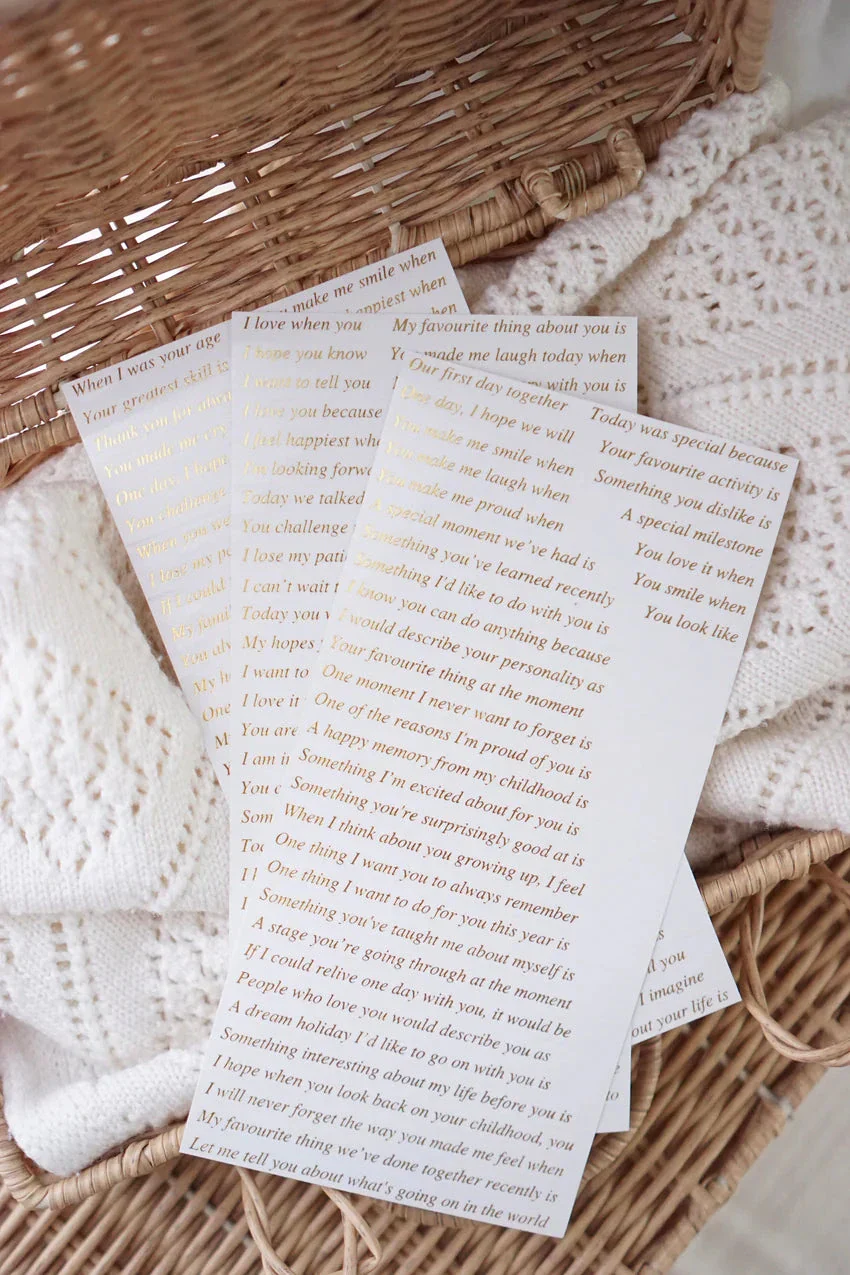 make me smile when
happiest when
When I was your age
Your greatest skill is
Thank you for alwa
You made me cry
One day, I hope
You challenge
When you we
I lose my pa
If I could
My famil
You alw
My h
One
I love when you
I hope you know
I want to tell you
I love you because
I feel happiest whe
I'm looking forwa
Today we talked
You challenge
I lose my pati
I can't wait t
Today you
My hopes
I want to
I love it
You are
I am i
You
Som
Too
I
I
My favourite thing about you is
You made me laugh today when
with you is
Our first day together
One day, I hope we will
You make me smile when
You make me laugh when
You make me proud when
A special moment we've had is
Something you've learned recently
Something I'd like to do with you is
I know you can do anything because
I would describe your personality as
Your favourite thing at the moment
One moment I never want to forget is
One of the reasons I'm proud of you is
A happy memory from my childhood is
Something I'm excited about for you is
Something you're surprisingly good at is
When I think about you growing up, I feel
One thing I want you to always remember
One thing I want to do for you this year is
Something you've taught me about myself is
A stage you're going through at the moment
If I could relive one day with you, it would be
People who love you would describe you as
A dream holiday I'd like to go on with you is
Something interesting about my life before you is
I hope when you look back on your childhood, you
I will never forget the way you made me feel when
My favourite thing we've done together recently is
Let me tell you about what's going on in the world
Today was special because
Your favourite activity is
Something you dislike is
A special milestone
You love it when
You smile when
You look like
you
I imagine
out your life is
to